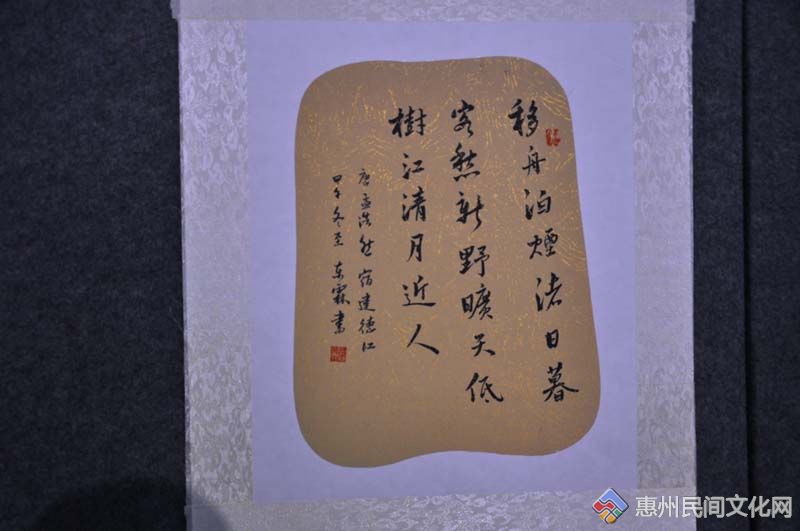 移舟泊煙渚日暮
客愁新野曠天低
樹江清月近人
唐孟浩然宿建德江
甲午冬至東霖書
惠州民间文化网